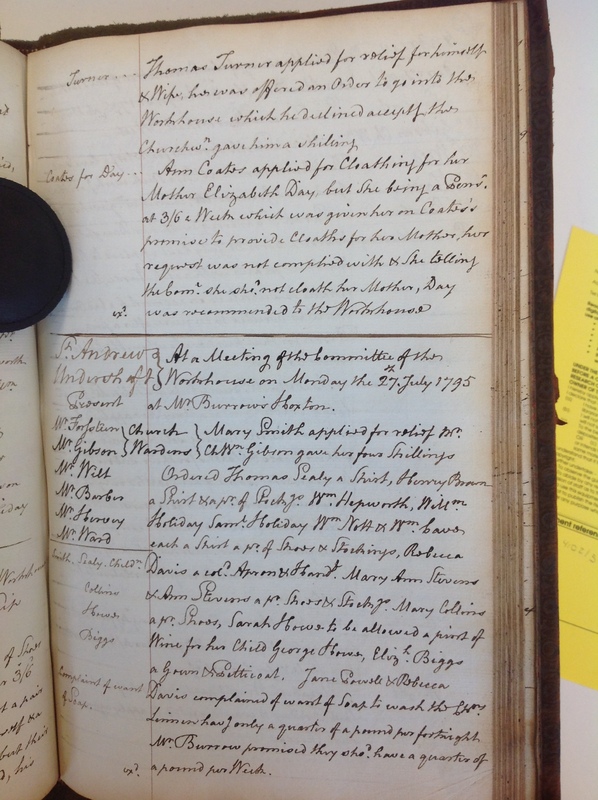 Turner... Thomas Turner applied for relief for himself
& Wife, he was offered an Order to go into the
Workhouse which he declined accept.g the
Churchwn. gave him a shilling
Coates for Day... Ann Coates applied for Cloathing for her
Mother Elizabeth Day, but She being a Penr.
at 3/6 e Week which was given her on Coates's
promise to provide Cloaths for her Mother, her
request was not complied with & She telling
the Comee. she shod. not cloath her Mother, Day
exd. was recommended to the Workhouse
St. Andrew Undershaft } At a Meeting of the Committee of the
Workhouse on Monday the 27th. July 1795
Present at Mr. Burrows Hoxton.
Mr. Forsteen
Mr. Gibson } Church Wardens } Mary Smith applied for relief Mr.
Ch.Wn. Gibson gave her four Shillings
Mr. Wilt Ordered Thomas Sealy a Shirt, Henry Brown
Mr. Barber a Shirt & a pr. of Stockgs. Wm. Hepworth, Willm.
Mr. Hervey Holiday Saml. Holiday Wm. Nott & Wm. Eaves
Mr. Ward each a Shirt a pr. of Shoes & Stockings, Rebecca
Smith, Sealy, Childn. Davis a cold. Apron & Handf. Mary Ann Stevens
Collins & Ann Stevens a pr. Shoes & Stockgs. Mary Collins
Howe a pr. Shoes, Sarah Howe to be allowed a pint of
Biggs Wine for her Child George Howe, Elizth. Biggs
a Gown & Petticoat. Jane Powell & Rebecca
Complaint of want of Soap. Davis complained of want of Soap to wash the
Linnen havg. only a quarter of a pound per fortnight
Mr. Burrow promised they shod. have a quarter of
exd. a pound per Week.
3/6
402/5